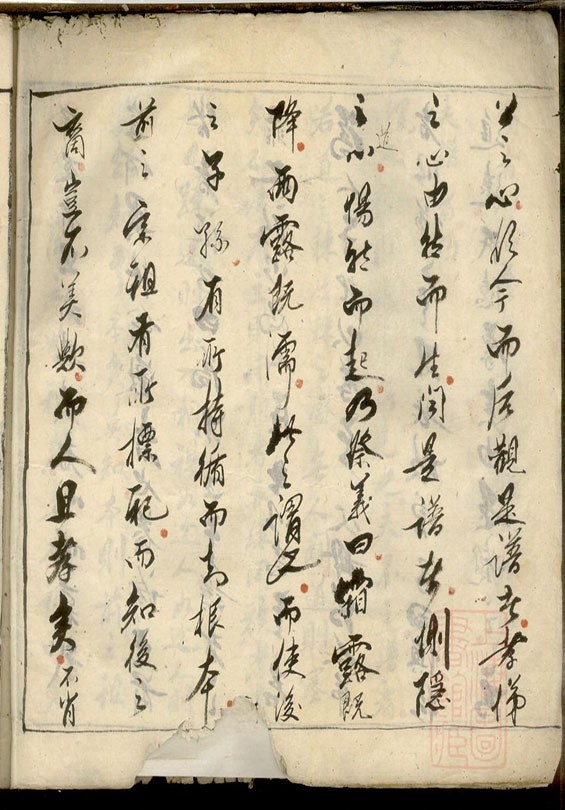 之心於今而后觀是譜者孝悌
之心由然而生閱是譜者惻隱
之心惕然而起乃祭義曰霜露既
降雨露既濡此之謂也而使後
之子孫有所持循而知根本
前之宗祖有所標配而知後之
裔豈不美歟而人且孝矣不肖